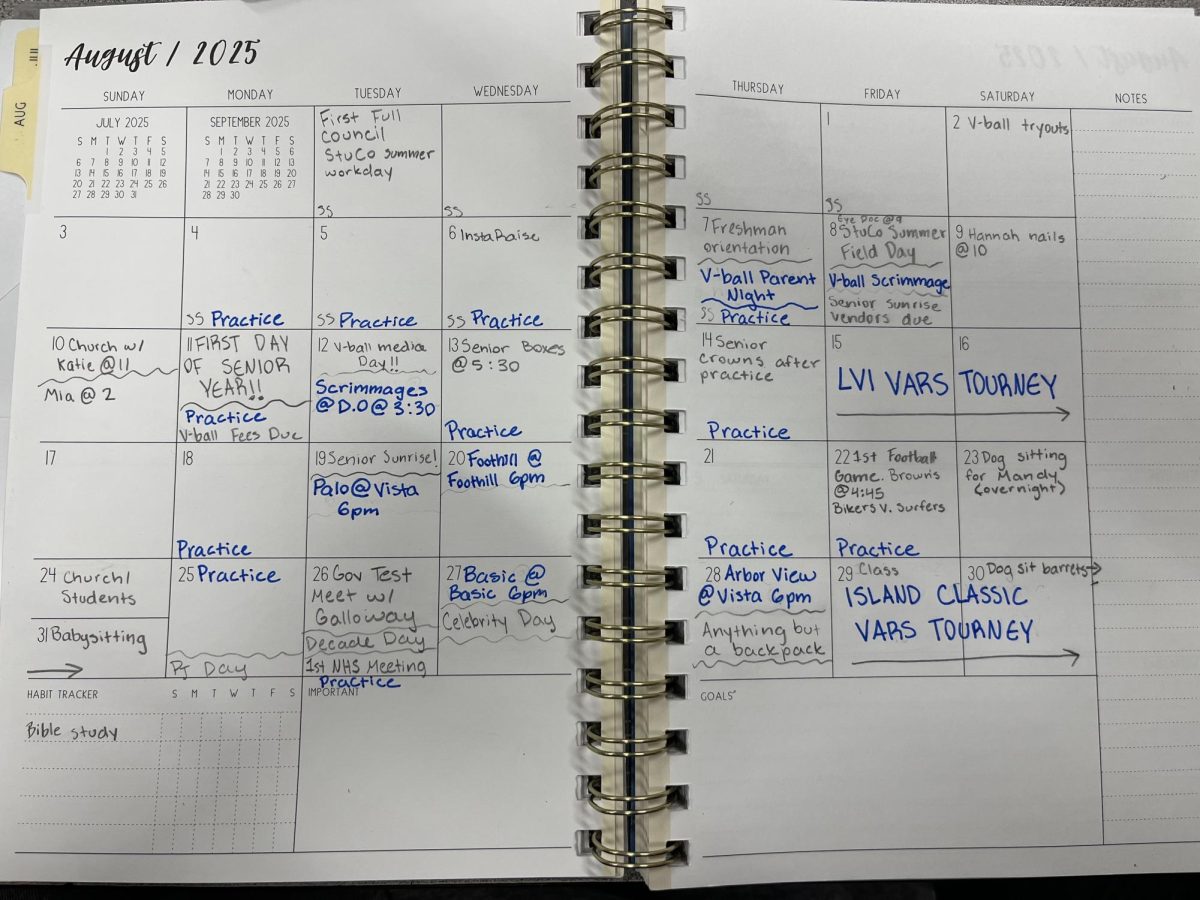 August / 2025
AUG
SUNDAY MONDAY TUESDAY WEDNESDAY THURSDAY FRIDAY SATURDAY NOTES
JULY 2025
S M T W T F S
1 2 3 4 5
6 7 8 9 10 11 12
13 14 15 16 17 18 19
20 21 22 23 24 25 26
27 28 29 30 31
SEPTEMBER 2025
S M T W T F S
1 2 3 4 5 6
7 8 9 10 11 12 13
14 15 16 17 18 19 20
21 22 23 24 25 26 27
28 29 30
First Full
Council
StuCo summer
workday
SS
SS
SS
1
SS
2 V-ball tryouts
3
4
SS Practice
5
SS Practice
6 InstaRaise
SS Practice
7 Freshman
orientation
V-ball Parent
Night
SS Practice
Eye Doc @ 9
8 StuCo Summer
Field Day
V-ball Scrimmage
Senior sunrise
vendors due
9 Hannah nails
@ 10
10 Church w/
Katie @ 11
Mia @ 2
11 FIRST DAY
OF SENIOR
YEAR!!
Practice
V-ball Fees Due
12 V-ball media
Day!!
Scrimmages
@ D.O @ 3:30
13 Senior Boxes
@ 5:30
Practice
14 Senior
crowns after
practice
Practice
15
16
LVI VARS TOURNEY
17
18
Practice
19 Senior Sunrise!
Palo @ Vista
6pm
20 Foothill @
Foothill 6pm
21
Practice
22 1st Football
Game. Browns
@ 4:45
Bikers V. Surfers
Practice
23 Dog sitting
for Mandy
(overnight)
24 Church/
Students
31 Babysitting
25 Practice
PJ Day
26 Gov Test
Meet w/
Galloway
Decade Day
1st NHS Meeting
Practice
27 Basic @
Basic 6pm
Celebrity Day
28 Arbor View
@ Vista 6pm
Anything but
a backpack
29 Class
30 Dog sit barrets
ISLAND CLASSIC
VARS TOURNEY
HABIT TRACKER S M T W T F S
Bible study
IMPORTANT
GOALS